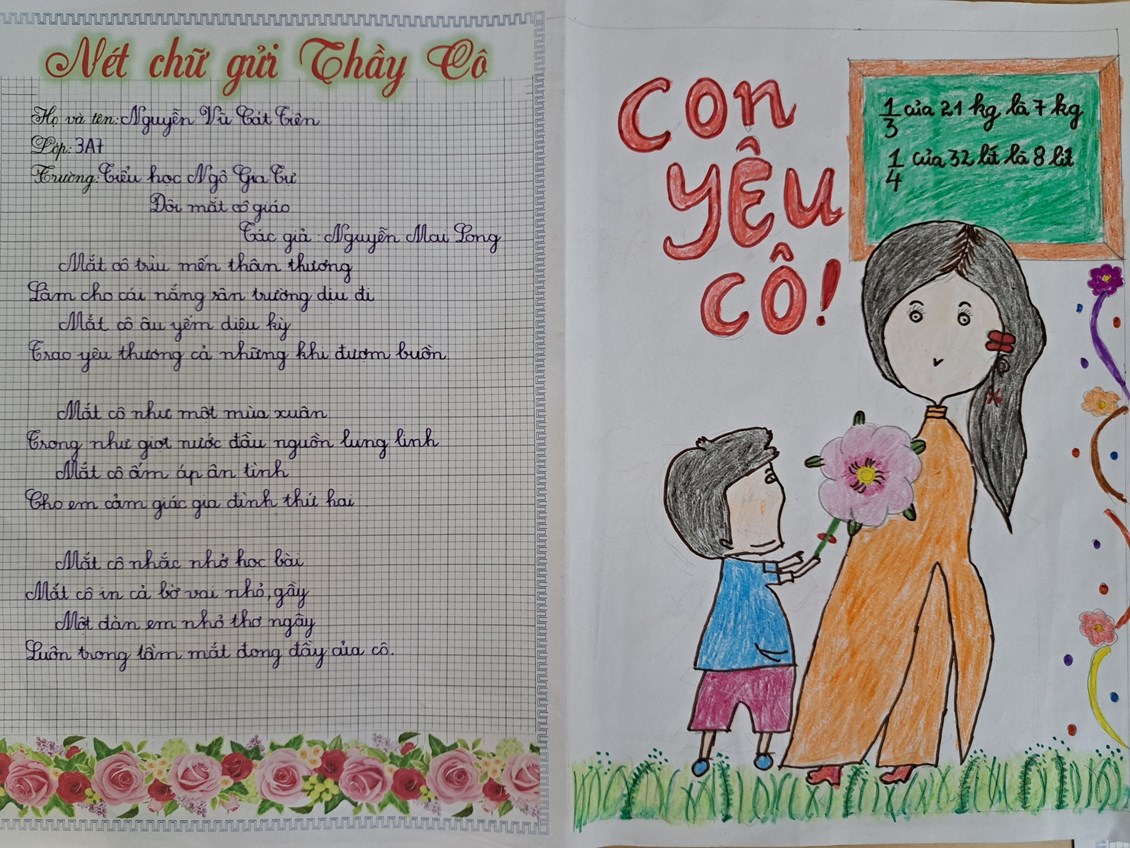 Nét chữ gửi Thầy Cô
Họ và tên: Nguyễn Vũ Cát Tiên
Lớp: 3A7
Trường: Tiểu học Ngô Gia Tự
Đôi mắt cô giáo
Tác giả: Nguyễn Mai Long
Mắt cô trìu mến thân thương
Làm cho cái nắng sân trường dịu đi
Mắt cô âu yếm diệu kỳ
Trao yêu thương cả những khi đượm buồn.
Mắt cô như một mùa xuân
Trong như giọt nước đầu nguồn lung linh
Mắt cô ấm áp ân tình
Cho em cảm giác gia đình thứ hai
Mắt cô nhắc nhở học bài
Mắt cô in cả bờ vai nhỏ, gầy
Một đàn em nhỏ thơ ngây
Luôn trong tầm mắt đong đầy của cô.
CON
YÊU
CÔ!
1/3 của 21 kg là 7 kg
1/4 của 32 lít là 8 lít